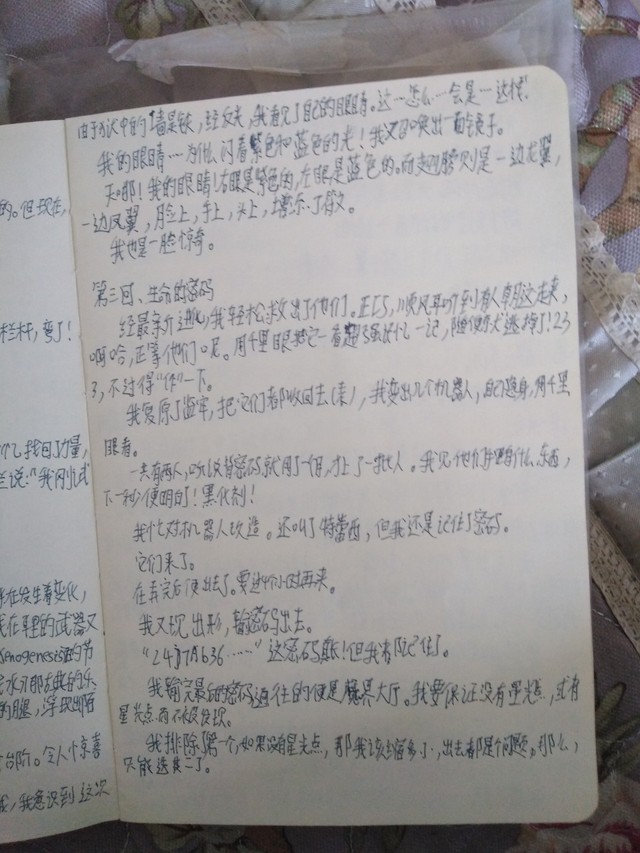 的。但现在,
栏杆,变了!
找回力量,
兰说:“我刚试
在发生着变化,
我在手里的武器又
的腿,浮现出陌
台阶。令人惊喜
我意识到这次
由于状中的墙是铁,经反光,我看见了自己的眼睛。这一怎么…会是一这样!
我的眼睛…为什么闪着紫色和蓝色的光!我又唤出一面镜子。
天哪!我的眼睛!右眼是紫色的,左眼是蓝色的。而翅膀则是一边龙翼,
一边凤翼,脸上,手上,头上,增添了符文。
我也是一脸惊奇。
第三回、生命的密码
经最新介进化,我轻松救出了他们。正巧,顺风耳听到有人朝这走来,
啊哈,正等他们呢。用千里眼把它一看
3,不过得“休”一下。
我复原了监牢,把它们都收回去(来),我变出几个机器人,自己隐身,用千里
眼看。
一共有两人,听以背密码就用了一月,才上了一批人。我见他们手里有什么东西,
下一秒便明白了!黑化剂!
我忙对机器人改造。还叫了特蕾西,但我还是记住了密码。
它们来了。
在弄完后便出去了。要过4个小时再来。
我又现出形,输密码出去。
“24J7Ab36……”这密码长!但我都记住了。
我输完最后的密码通往的便是魔界大厅。我要保证没有星光点,或有
星光点而不被发现。
我排除了第一个,如果没有星光点,那我该多小,出去都是个问题。那么,
只能选其二了。